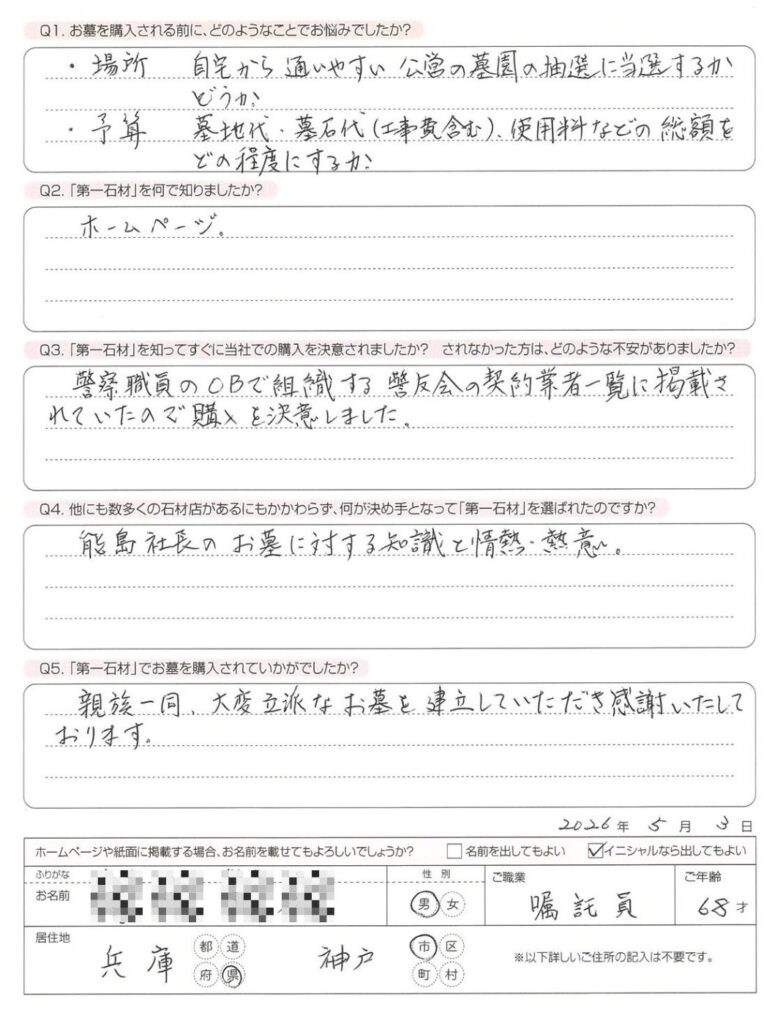 Q1. お墓を購入される前に、どのようなことでお悩みでしたか?
・場所 自宅から通いやすい公営の墓園の抽選に当選するか
どうか
・予算 墓地代・墓石代(工事費含む)、使用料などの総額を
どの程度にするか
Q2. 「第一石材」を何で知りましたか?
ホームページ。
Q3. 「第一石材」を知ってすぐに当社での購入を決意されましたか? されなかった方は、どのような不安がありましたか?
警察職員のOBで組織する警友会の契約業者一覧に掲載さ
れていたので購入を決意しました。
Q4. 他にも数多くの石材店があるにもかかわらず、何が決め手となって「第一石材」を選ばれたのですか?
能島社長のお墓に対する知識と情熱・熱意。
Q5. 「第一石材」でお墓を購入されていかがでしたか?
親族一同、大変立派なお墓を建立していただき感謝いたして
おります。
2026年 5月 3日
ホームページや紙面に掲載する場合、お名前を載せてもよろしいでしょうか? 名前を出してもよい イニシャルなら出してもよい
ふりがな
お名前
性別
男 女
ご職業
嘱託員
ご年齢
68才
居住地
兵庫 都 道 府 県 神戸 市 区 町 村
※以下詳しいご住所の記入は不要です。